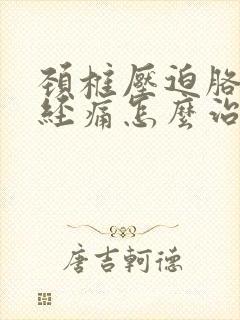 頚椎壓迫胳
經痛怎麼治
唐吉軻德